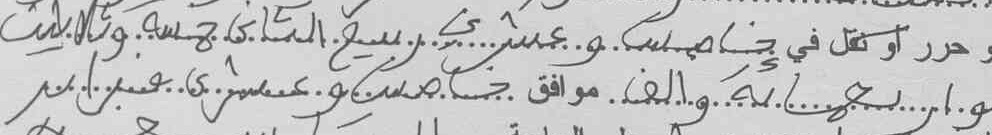 و حرر أو نقل في خامس و عشرين ربيع الثاني خمسة وثلاثين
و اربعمائة والف موافق خامس و عشرين فبراير